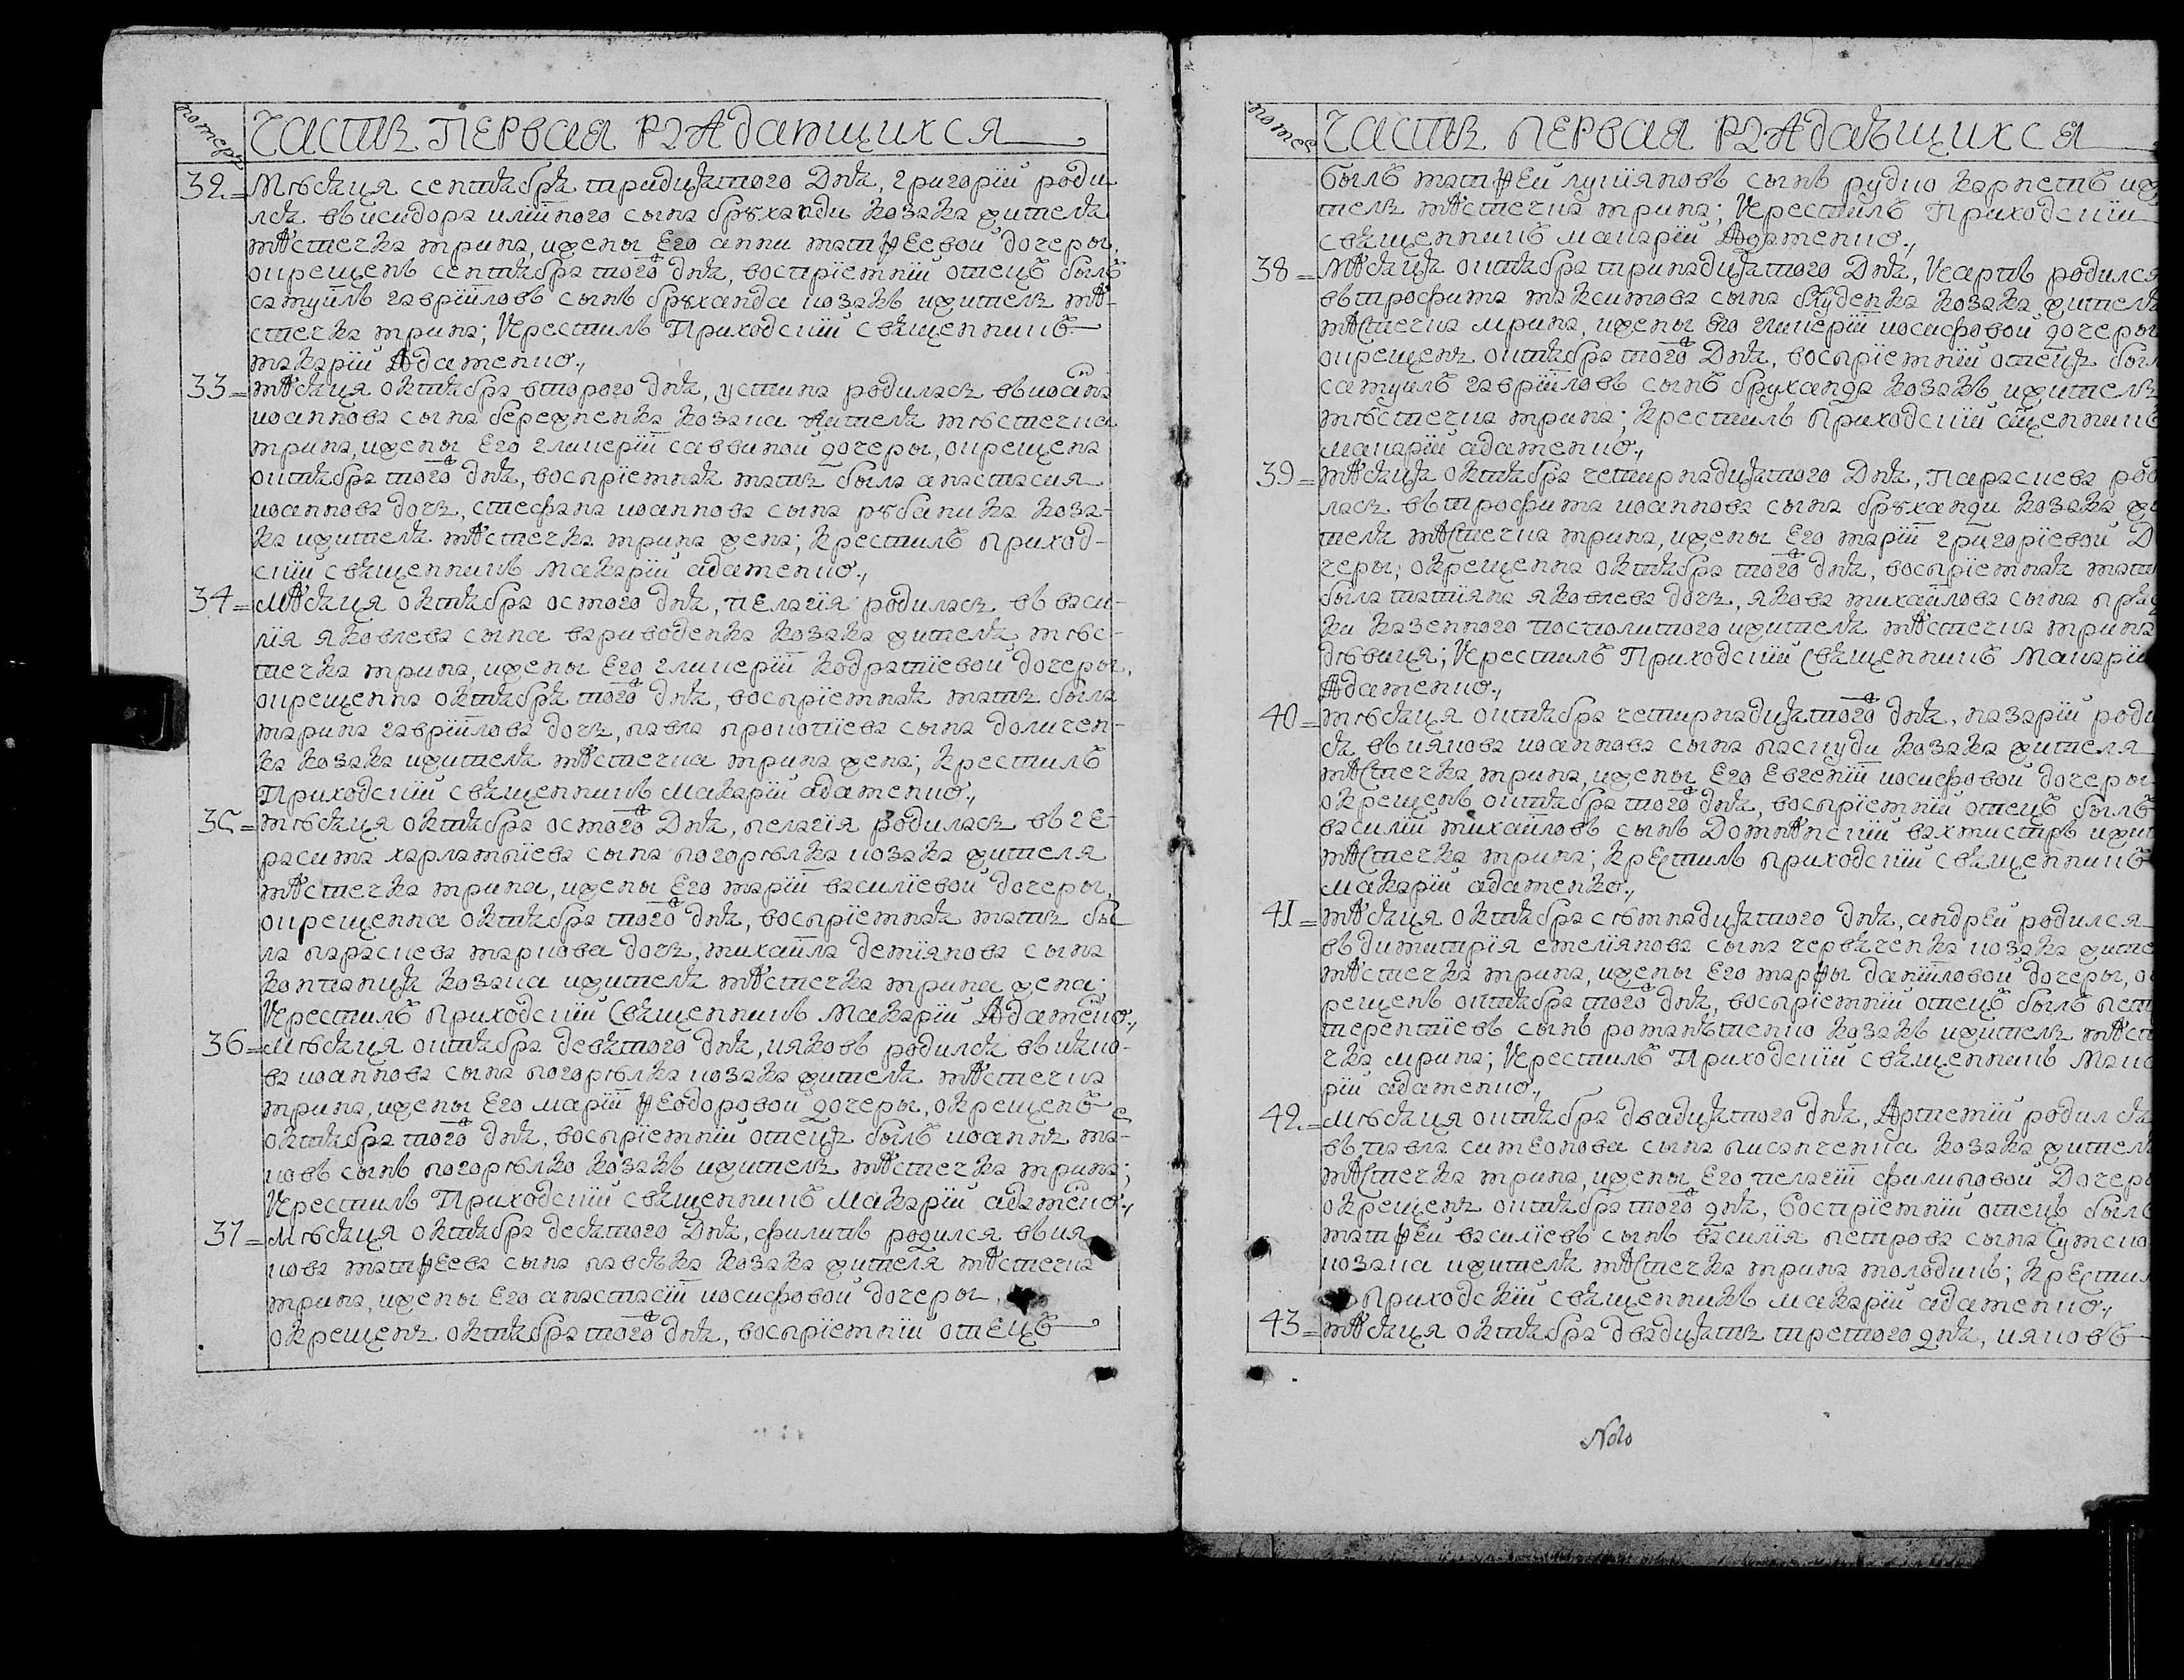 номеръ
ЧАСТЬ ПЕРВАЯ РОЖдающихся
32 = Мѣсяця септября тридцятого Дня, григорій роди
лся въ исидора иліиного сына брꙋханди козака жителя
мѣстечка мрина, и жены Его анни матѳеевой дочеры,
окрещенъ септября того дня, воспріемній отецъ былъ
самуилъ гавріиловъ сынъ брꙋханда козакъ и житель мѣ-
стечка мрина; Крестилъ Приходскій священникъ
макарій Адаменко.,
33 = мѣсяця октября второго дня, устина родилась въ иоана
иоаннова сына бережненка козака жителя мѣстечка
мрина, и жены Его гликерій саввиной дочеры, окрещена
октября того дня, воспріемная мать была анастасия
иоаннова дочь, стефана иоаннова сына рꙋбаника коза-
ка и жителя мѣстечка мрина жена; крестилъ приход-
скій священникъ Макарій адаменко.,
34 = Мѣсяця октября осмого дня, пЕлагія родилась въ васи-
лія яковлева сына вариводенка козака жителя мѣс-
течка мрина, и жены Его гликерій кодратіевой дочеры,
окрещенна октября того дня, воспріемная мать была
марина гавріилова дочь, павла прокопіева сына доличен-
ка козака и жителя мѣстечка мрина жена; крестилъ
Приходскій священникъ Макарій адаменко.,
35 = мѣсяця октября осмого Дня, пелагія родилась въ гЕ-
расима харлампіева сына погорѣлка козака жителя
мѣстечка мрина, и жены Его марій василіевой дочеры,
окрещенна октября того дня, воспріемная мать бы
ла параскева маркова дочь, михаила деміянова сына
коптаниця козака и жителя мѣстечка мрина жена;
Крестилъ приходскій Священникъ Макарій Адаменко.,
36 = Мѣсяця октября девятого дня, ияковъ родился въ ияко-
ва иоаннова сына погорѣлка козака жителя мѣстечка
мрина, и жены Его марій ѳеодоровой дочеры, окрещенъ
октября того дня, воспріемній отець былъ иоаннъ ма-
ковъ сынъ погорѣлко козакъ и житель мѣстечка мрина;
Крестилъ Приходскій священникъ макарій адаменко.,
37 = Мѣсяця октября десятого Дня, филипъ родился въ ия
кова матѳеева сына павсѣка козака жителя мѣстечка
мрина, и жены Его анастасій иосифовой дочеры,
окрещенъ октября того дня, воспріемній отЕцъ
ЧАСТЬ ПЕРВАЯ РОЖдающихся
былъ матѳей лукіяновъ сынъ рудко карпетъ и жи
тель мѣстечка мрина; Крестилъ Приходскій
священникъ макарій Адаменко.,
38 = Мѣсяця октября тринадцятого Дня, Карпъ родился
въ трофима максимова сына скуденка козака жителя
мѣстечка мрина, и жены Его гликерій иосифовой дочеры
окрещенъ октября того Дня, воспріемній отець был
самуилъ гавріиловъ сынъ бруханда козакъ и житель
мѣстечка мрина; крестилъ приходскій сщенникъ
макарій адаменко.,
39 = мѣсяця октября четирнадцятого Дня, параскева род
лась въ трофима иоаннова сына брꙋханди козака жи
теля мѣстечка мрина, и жены Его марій григоріевой Д
черы; окрещенна октября того дня, воспріемная мат
была татіяна яковлева дочь, якова михаилова сына
ки казенного посполитого и жителя мѣстечка мрина
дѣвиця; Крестилъ Приходскій Священникъ Макарій
Адаменко.,
40 = мѣсяця октября четирнадцятого дня, назарій роди
ся въ иякова иоаннова сына паскуди козака жителя
мѣстечка мрина, и жены Его Евгеній иосифовой дочеры
окрещенъ октября того дня, воспріемній отецъ былъ
василій михайловъ сынъ Домнѣнскій вахмистръ и жит
мѣстечка мрина; крЕстилъ приходскій священникъ
макарій адаменко.,
41 = мѣсяця октября сѣмнадцятого дня, андрЕй родился
въ димитрія емеліянова сына червяченка козака жите
мѣстечка мрина, и жены Его марѳы даніиловой дочеры, ок
рещенъ октября того дня, воспріемній отецъ былъ пет
терентіевъ сынъ романѣтенко козакъ и житель мѣсте
чка мрина; Крестилъ Приходскій священникъ Мака
рій адаменко.,
42 = Мѣсяця октября двадцятого дня, Артемій родился
въ павла симеонова сына писанченка козака жителя
мѣстечка мрина, и жены Его пелагій филиповой Дочеры
окрещенъ октября того дня, Воспріемній отець былъ
матѳей василіевъ сынъ василія петрова сына Сумско
козака и жителя мѣстечка мрина молодикъ; крЕстил
приходскій священникъ макарій адаменко.,
43 = мѣсяця октября двадцять третого дня, ияковъ